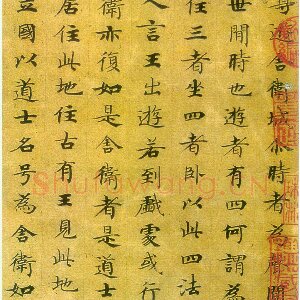 遊舍衛城爾時者為聲聞
世間時也遊者有四何謂為
住三者坐四者卧以此四法
人言王出遊若到戲處或行
衛亦復如是舍衛者是道士
居住此地住古有王見此地
立國以道士名号為舍衛如
Shufawang.CN